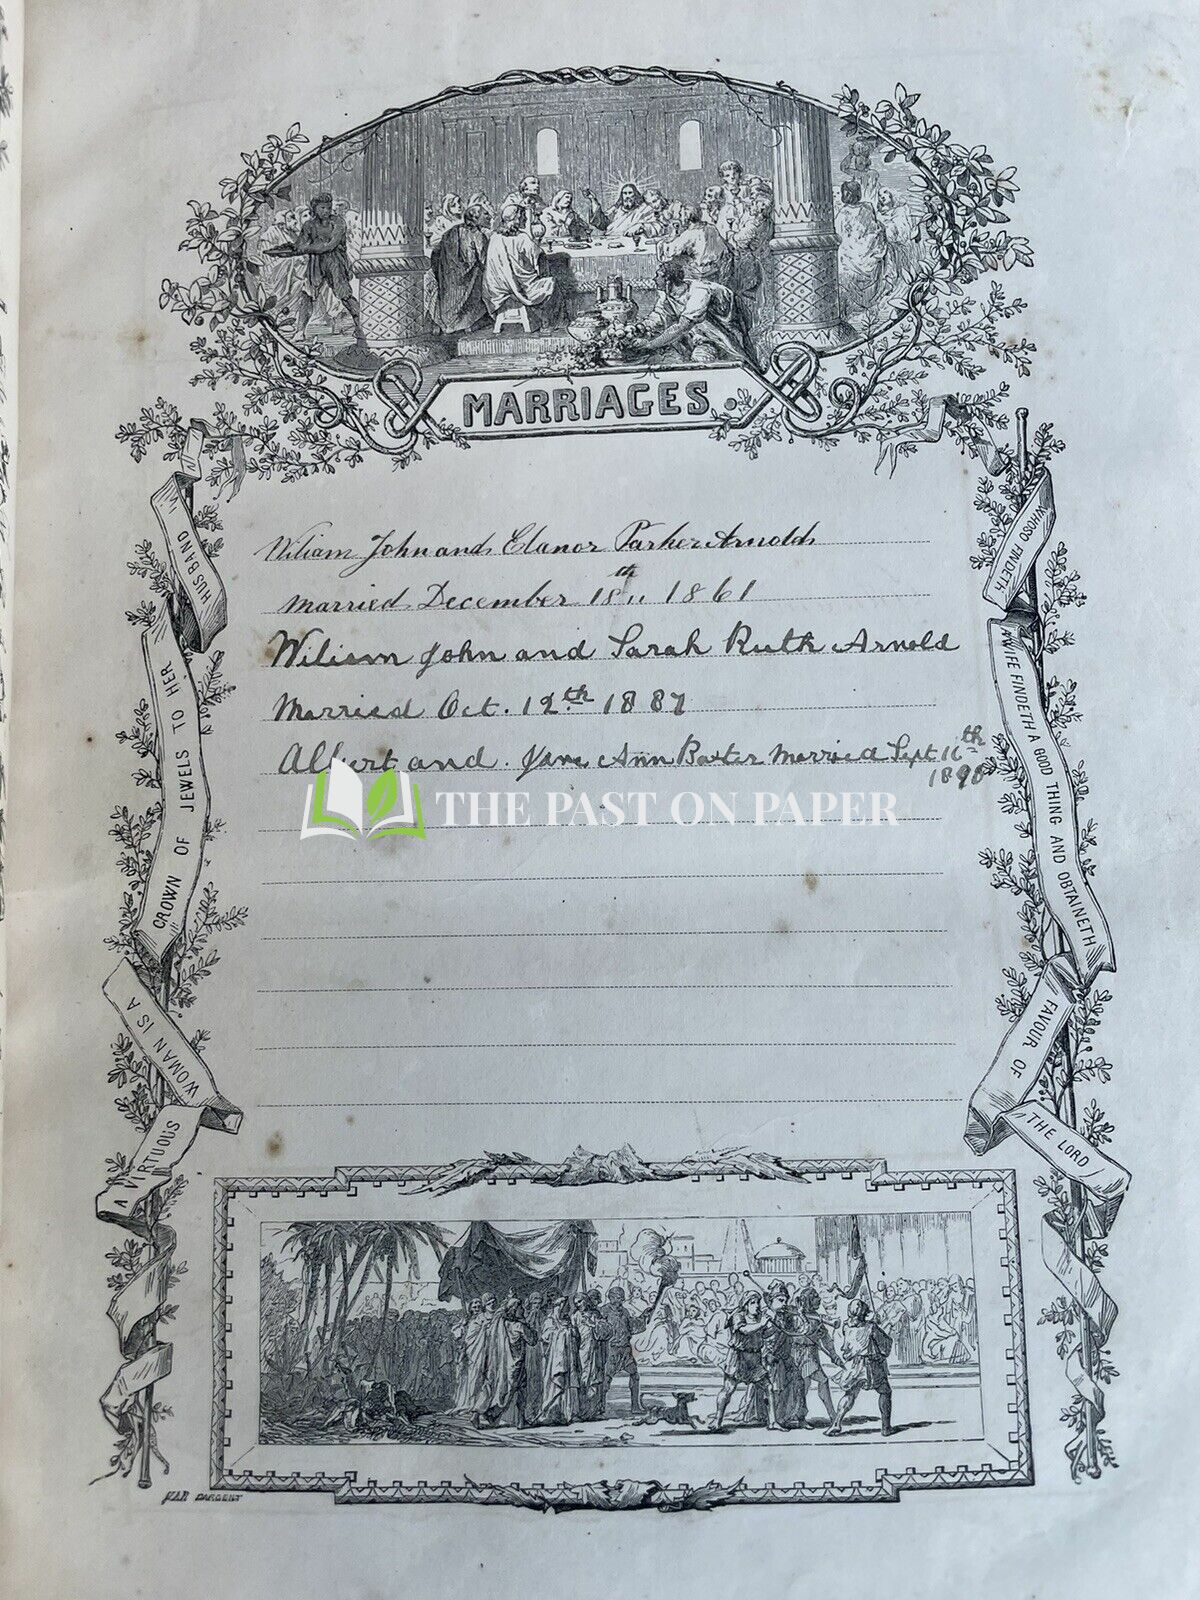 MARRIAGES.
Wiliam John and Elanor Parker Arnold
Married December 18th 1861
Wiliam John and Sarah Ruth Arnold
Married Oct. 12th 1887
Albert and Jane Ann Baxter Married Sept 16th
1890
THE PAST ON PAPER
A VIRTUOUS WOMAN IS A CROWN OF JEWELS TO HER HUSBAND
WHOSO FINDETH A WIFE FINDETH A GOOD THING AND OBTAINETH FAVOUR OF THE LORD
DARGENT